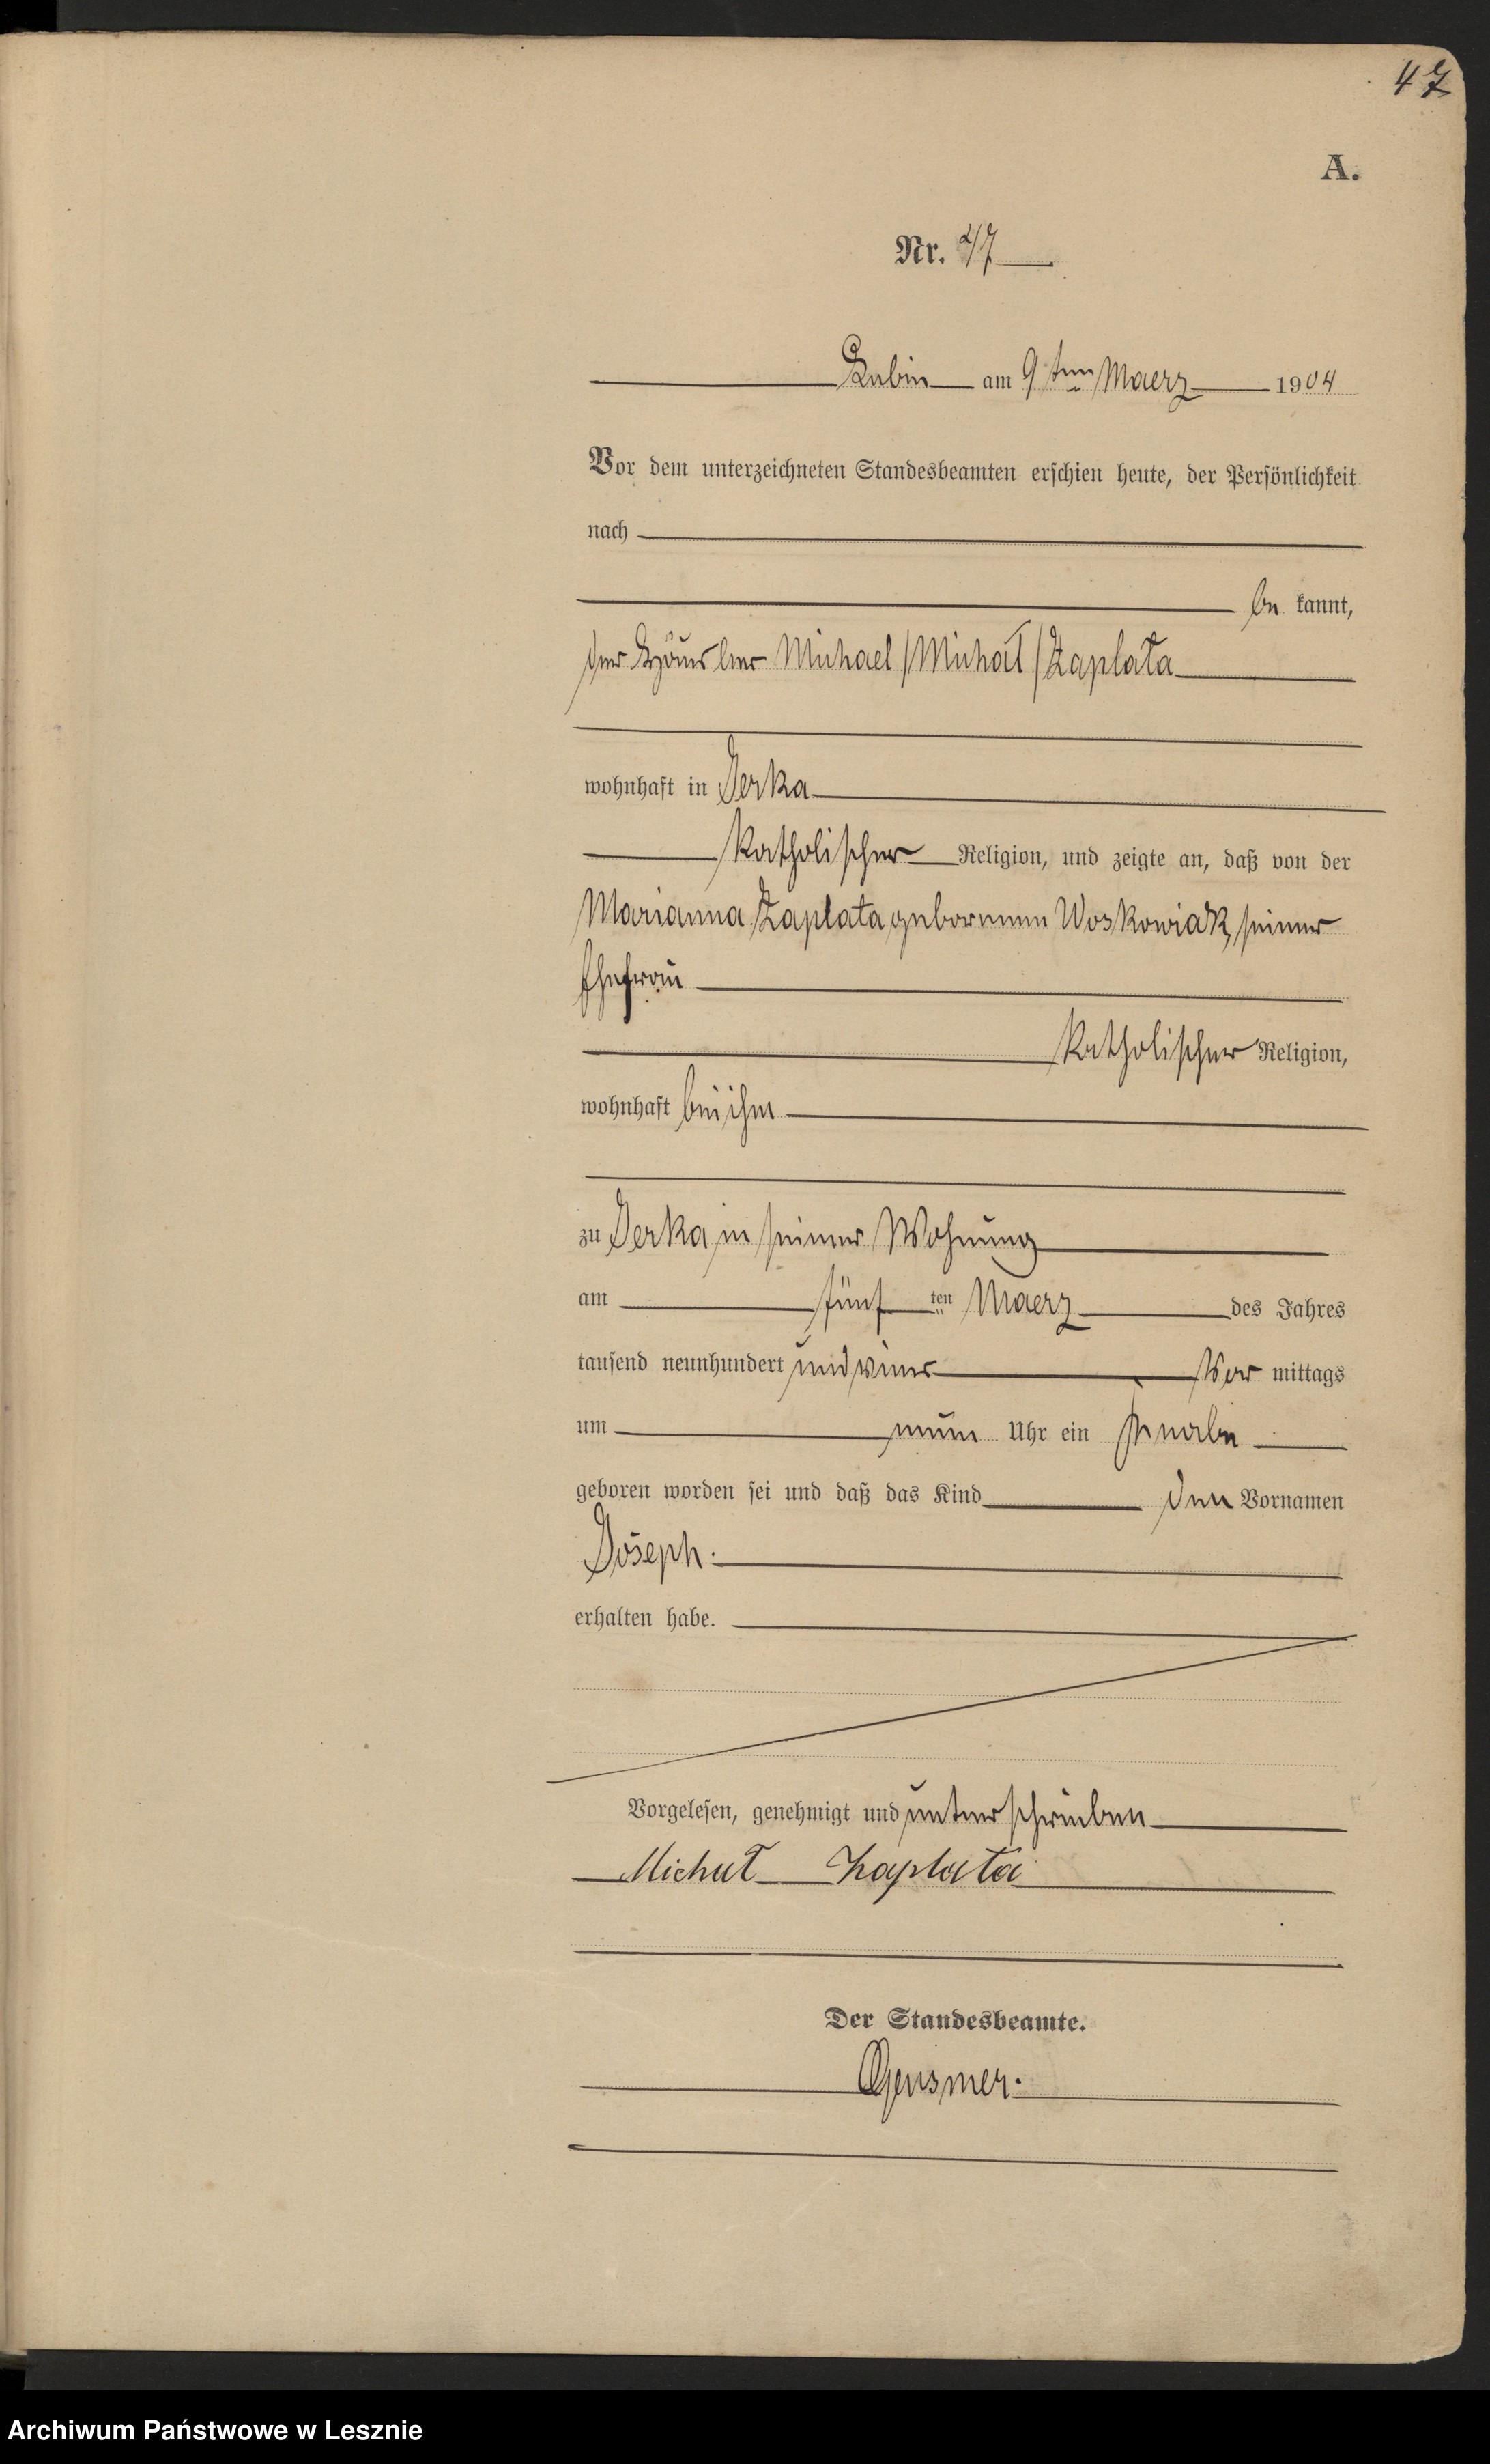 47
A.
Nr. 47
Lubin am 9ten Maerz 1904
Vor dem unterzeichneten Standesbeamten erschien heute, der Persönlichkeit
nach
be kannt,
der Häusler Michael /Michał/ Zaplata
wohnhaft in Jerka
katholischer Religion, und zeigte an, daß von der
Marianna Zaplata geborenen Woskowiak, seiner
Ehefrau
katholischer Religion,
wohnhaft bei ihm
zu Jerka in seiner Wohnung
am fünf ten Maerz des Jahres
tausend neunhundert und vier Vor mittags
um neun Uhr ein Knabe
geboren worden sei und daß das Kind den Vornamen
Joseph.
erhalten habe.
Vorgelesen, genehmigt und unterschrieben
Michał Zaplata
Der Standesbeamte.
Gensmer.
Archiwum Państwowe w Lesznie